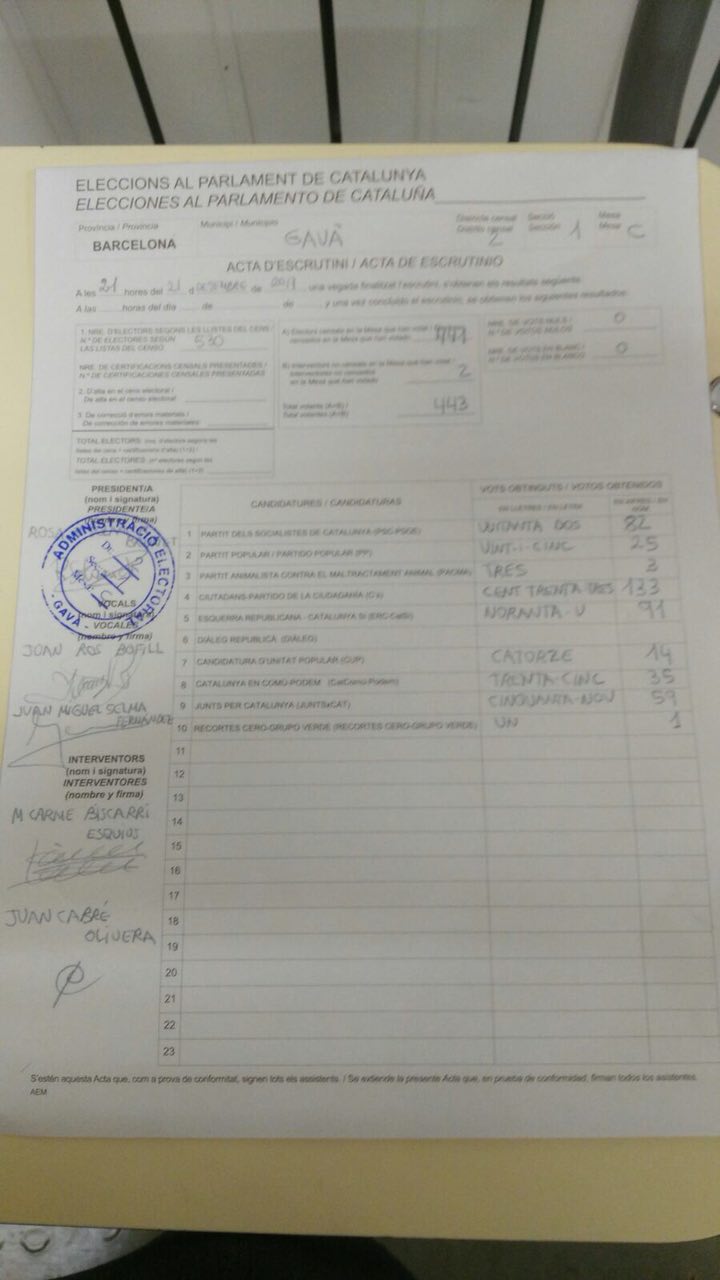 ELECCIONS AL PARLAMENT DE CATALUNYA
ELECCIONES AL PARLAMENTO DE CATALUÑA
Província / Provincia Municipi / Municipio Districte censal Secció Mesa
Distrito censal Sección Mesa
BARCELONA GAVÀ 2 1 C
ACTA D'ESCRUTINI / ACTA DE ESCRUTINIO
A les 21 hores del 21 d DESEMBRE de 2017, una vegada finalitzat l'escrutini, s'obtenen els resultats següents:
A las hores del día de de y una vez concluido el escrutinio, se obtienen los siguientes resultados:
1. NRE. D'ELECTORS SEGONS LES LLISTES DEL CENS /
N.º DE ELECTORES SEGÚN
LAS LISTAS DEL CENSO 530
NRE. DE CERTIFICACIONS CENSALS PRESENTADES /
N.º DE CERTIFICACIONES CENSALES PRESENTADAS
2. D'alta en el cens electoral /
De alta en el censo electoral
3. De correcció d'errors materials /
De corrección de errores materiales
TOTAL ELECTORS: (nre. d'electors segons les
llistes del cens + certificacions d'alta) (1+2) /
TOTAL ELECTORES: (n.º electores según las
listas del censo + certificaciones de alta) (1+2)
A) Electors censats en la Mesa que han votat /
censados en la Mesa que han votado 441
B) Interventors no censats en la Mesa que han votat /
Interventores no censados
en la Mesa que han votado 2
Total votants (A+B) /
Total votantes (A+B) 443
NRE. DE VOTS NULS /
N.º DE VOTOS NULOS 0
NRE. DE VOTS EN BLANC /
N.º DE VOTOS EN BLANCO 0
PRESIDENT/A
(nom i signatura)
PRESIDENTE/A
firma)
ROSA
ADMINISTRACIÓ ELECTORAL
GAVÀ
VOCALS
(nom i signatura)
VOCALES
(nombre y firma)
JOAN ROS BOFILL
JUAN MIGUEL SELMA
FERNÁNDEZ
INTERVENTORS
(nom i signatura)
INTERVENTORES
(nombre y firma)
M CARME BISCARRI
ESQUIUS
JUAN CABRÉ
OLIVERA
CANDIDATURES / CANDIDATURAS VOTS OBTINGUTS / VOTOS OBTENIDOS
EN LLETRES / EN LETRA EN XIFRES / EN NÚM.
1 PARTIT DELS SOCIALISTES DE CATALUNYA (PSC-PSOE) VUITANTA DOS 82
2 PARTIT POPULAR / PARTIDO POPULAR (PP) VINT-I-CINC 25
3 PARTIT ANIMALISTA CONTRA EL MALTRACTAMENT ANIMAL (PACMA) TRES 3
4 CIUTADANS-PARTIDO DE LA CIUDADANÍA (C's) CENT TRENTA TRES 133
5 ESQUERRA REPUBLICANA - CATALUNYA SÍ (ERC-CatSí) NORANTA-U 91
6 DIÀLEG REPUBLICÀ (DIÀLEG)
7 CANDIDATURA D'UNITAT POPULAR (CUP) CATORZE 14
8 CATALUNYA EN COMÚ-PODEM (CatComú-Podem) TRENTA-CINC 35
9 JUNTS PER CATALUNYA (JUNTSxCAT) CINQUANTA-NOU 59
10 RECORTES CERO-GRUPO VERDE (RECORTES CERO-GRUPO VERDE) UN 1
11
12
13
14
15
16
17
18
19
20
21
22
23
S'estén aquesta Acta que, com a prova de conformitat, signen tots els assistents. / Se extiende la presente Acta que, en prueba de conformidad, firman todos los asistentes.
AEM